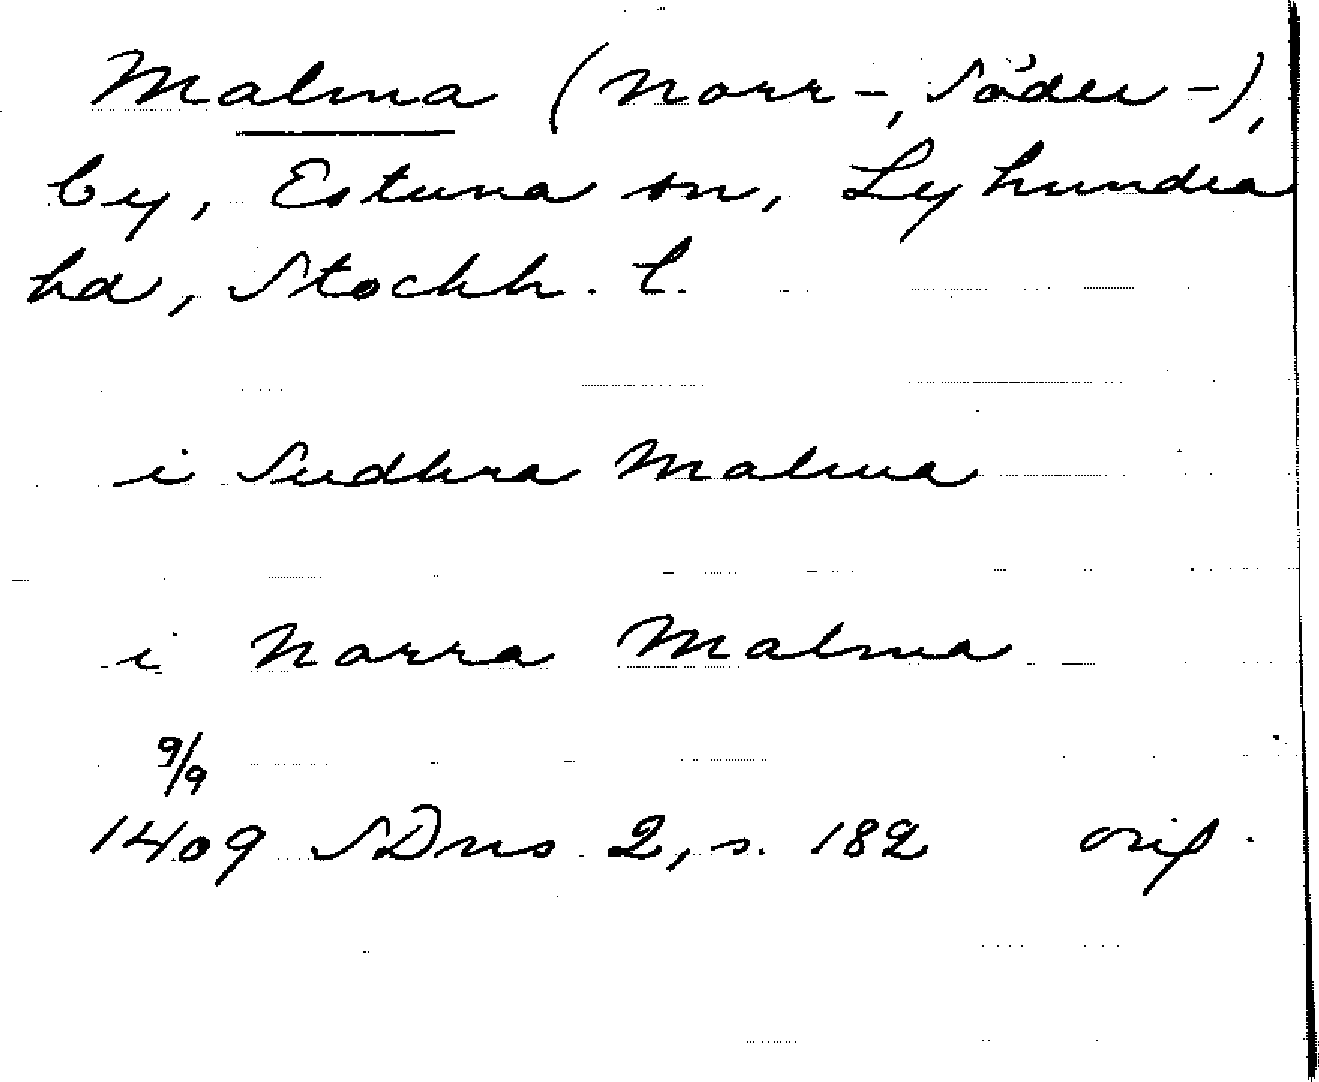 Malma (Norr-, Söder-),
by, Estuna sn, Lyhundra
hd, Stockh. l.
i Sudhra Malma
i Norra Malma
9/9
1409 SDns 2, s. 182 orig.